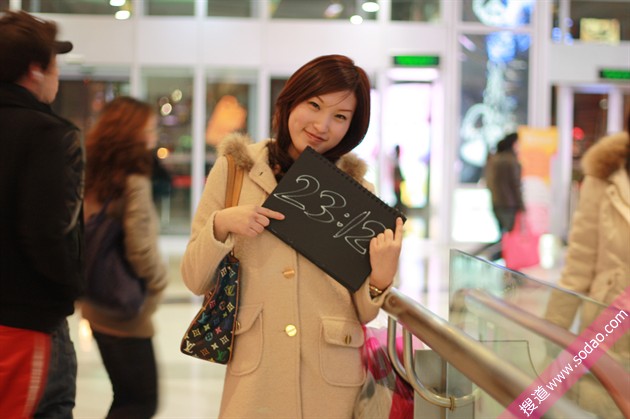 23:12
搜道www.sodao.com